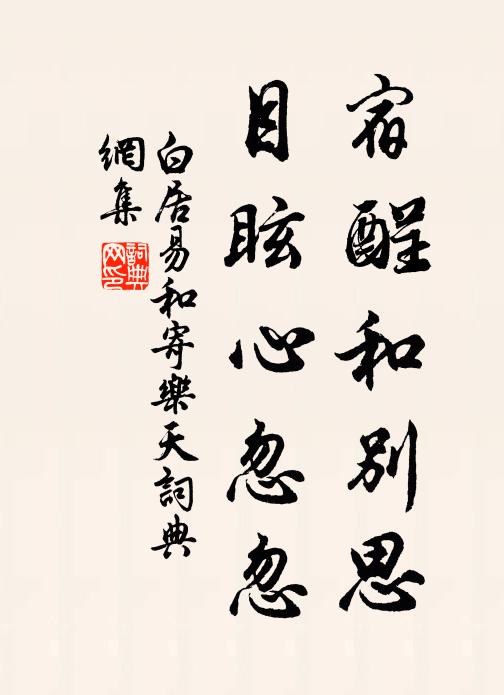 宿酲和別思
目眩心忽忽
白居易和寄樂天詞典
網集
詞典
网印